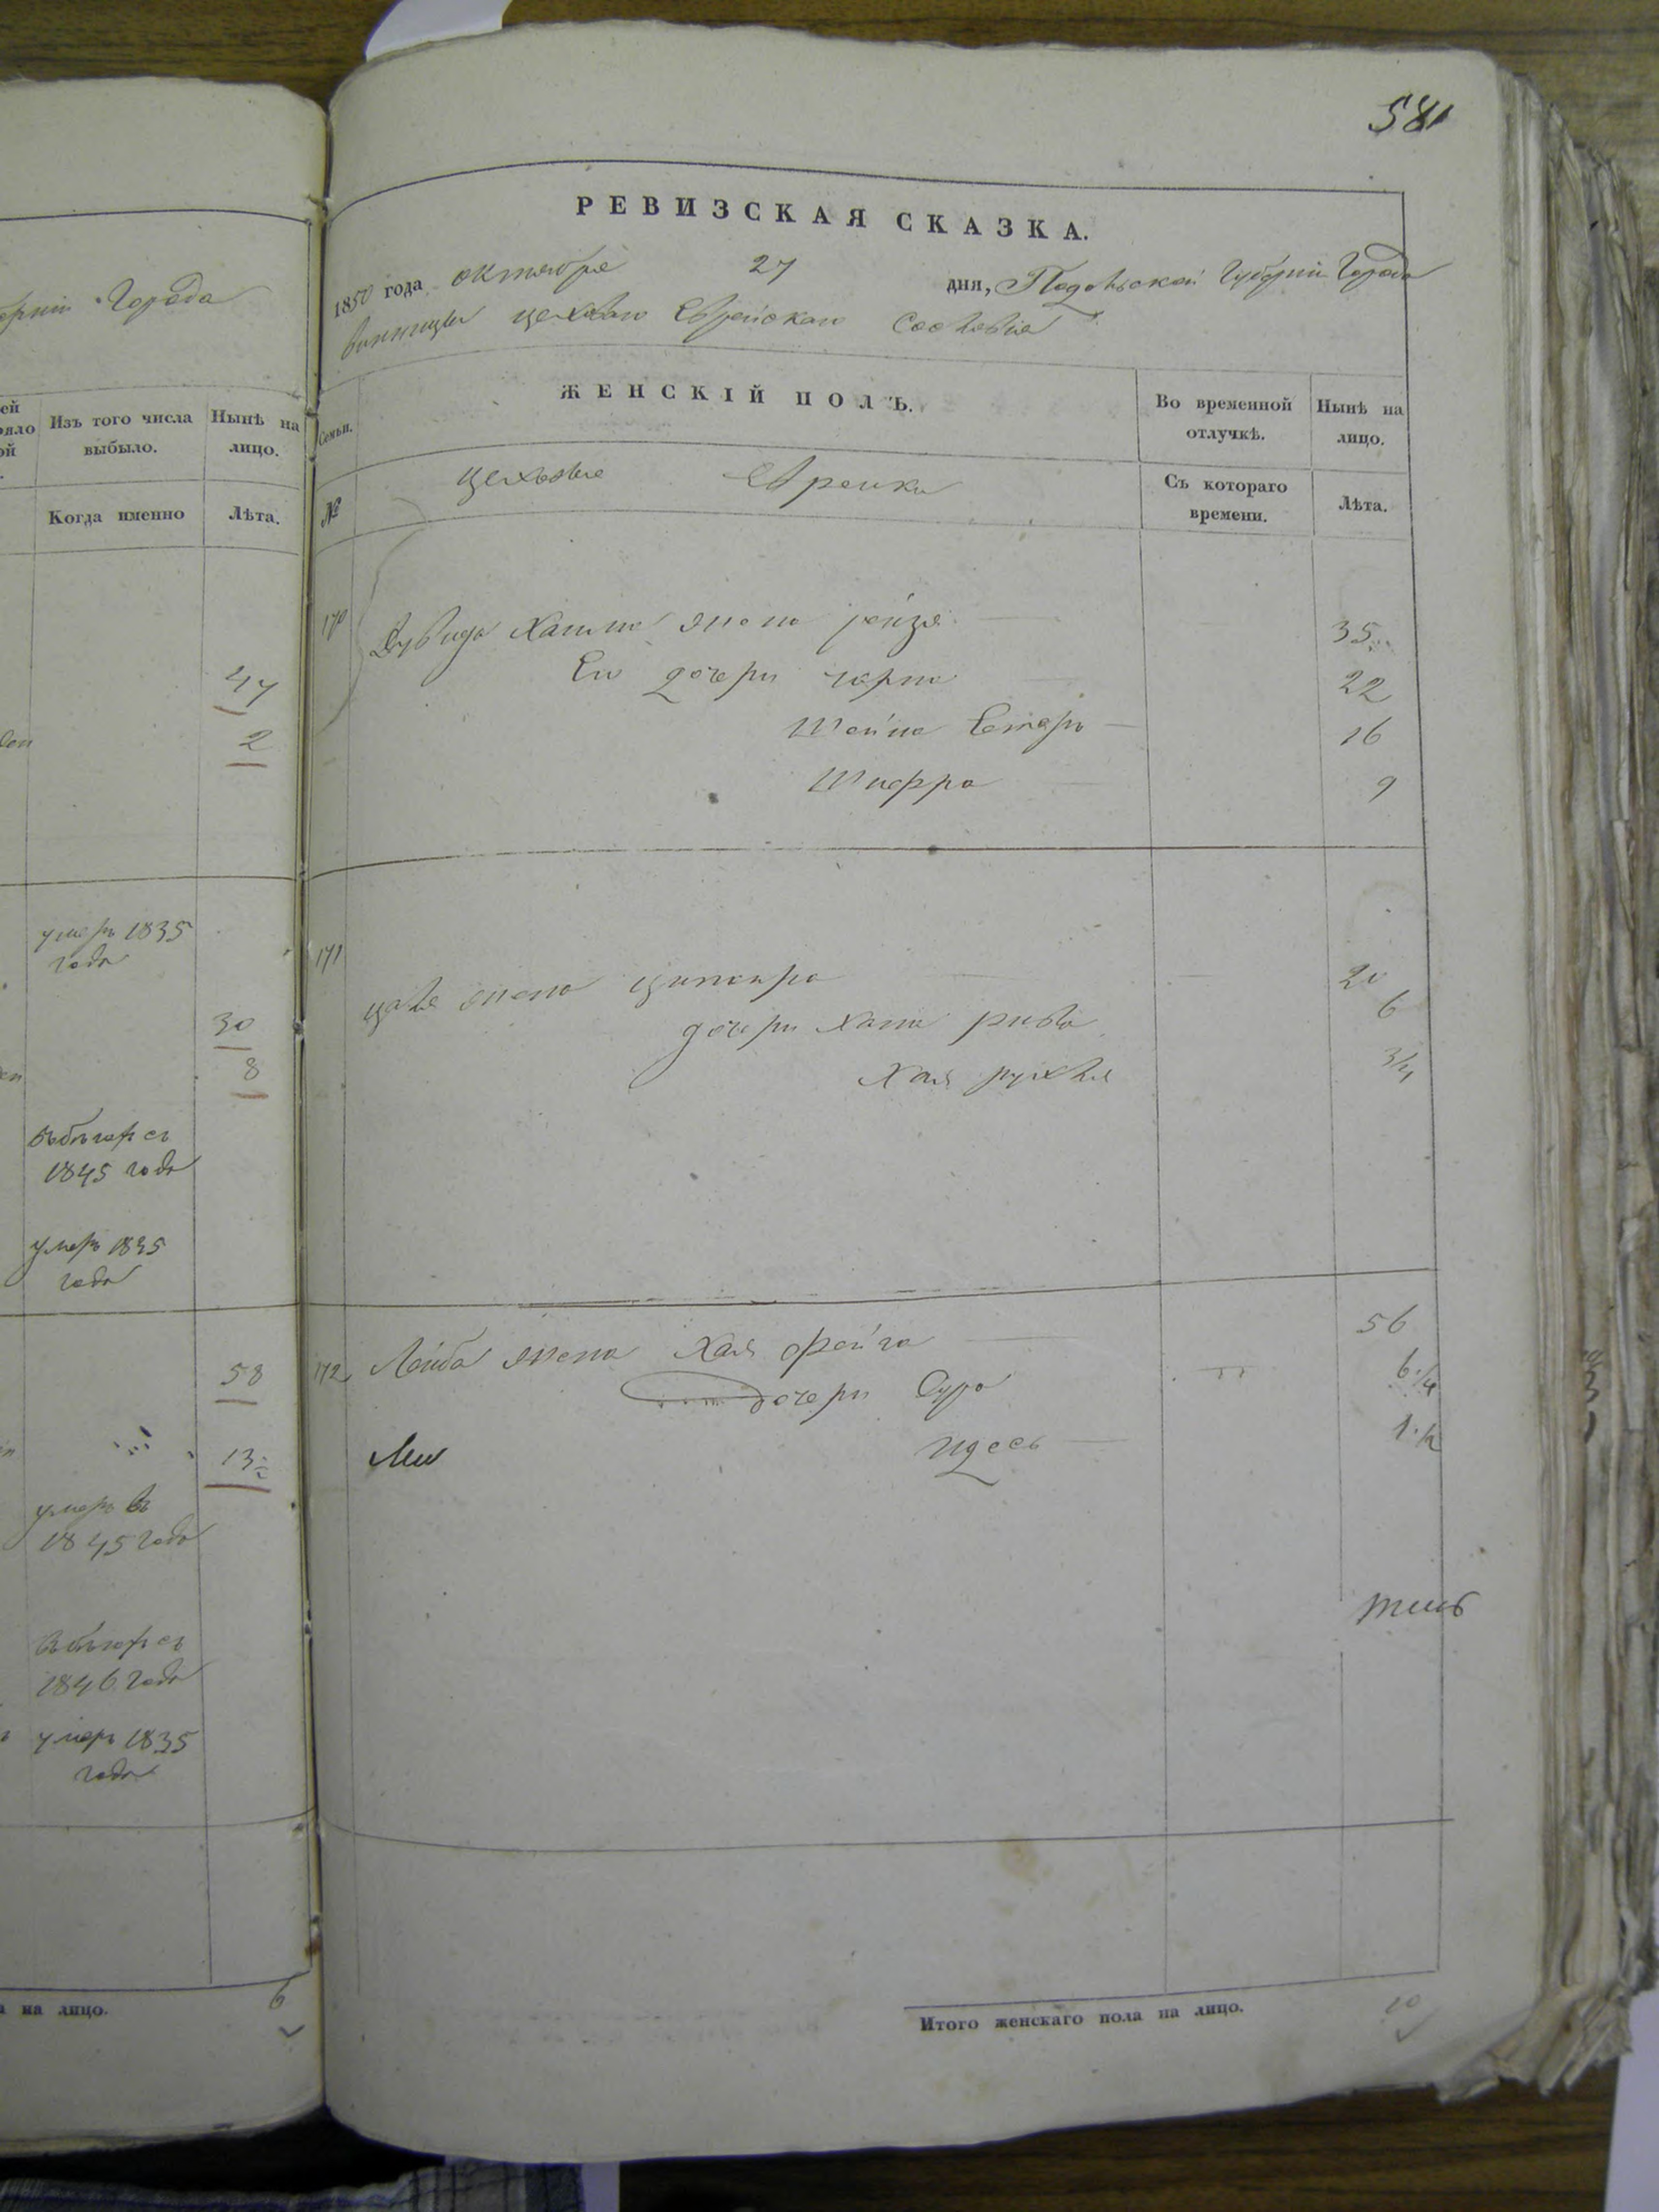 ерніи Города
ей
Изъ того числа
выбыло.
Нынѣ на
лицо.
Когда именно
Лѣта.
47
2
умеръ 1835
года
30
8
1845 года
умеръ 1835
года
58
13
умеръ въ
1845 года
1846 года
умеръ 1835
года
на лицо.
6
581
РЕВИЗСКАЯ СКАЗКА.
1850 года октября 27 дня, Подольской Губерніи Города
Винницы цеховаго Еврейскаго Сословія
Семьи.
ЖЕНСКІЙ ПОЛЪ.
Во временной
отлучкѣ.
Нынѣ на
лицо.
№
цеховые Еврейки
Съ котораго
времени.
Лѣта.
170 Дувида Хаима жена рейзя 35
Его дочери чарна 22
Шейна Естеръ 16
Шифра 9
171
жена ципойра 20
дочери хана ривка 6
Хая рухля 3/4
172 Лейба жена Хая фейга 56
дочери Сура 6 1/4
Идесь 1 1/2
Итого женскаго пола на лицо. 10